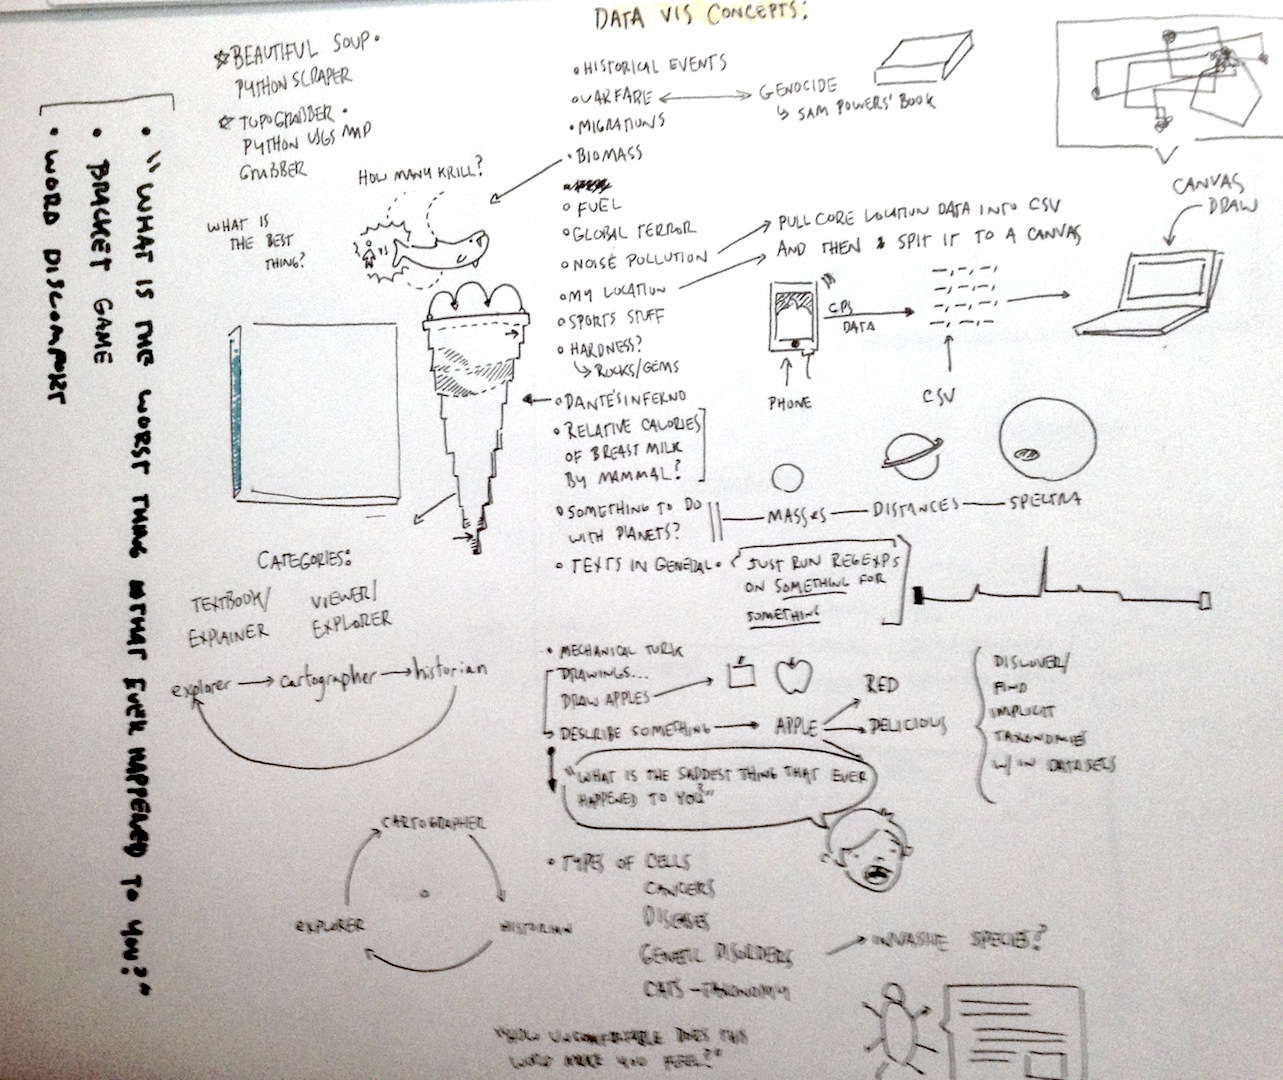 DATA VIS CONCEPTS:
☆ BEAUTIFUL SOUP •
PYTHON SCRAPER
☆ TOPOGRABBER •
PYTHON USGS MAP
GRABBER
HOW MANY KRILL?
WHAT IS
THE BEST
THING?
VS
• HISTORICAL EVENTS
• WARFARE
GENOCIDE
↳ SAM POWERS' BOOK
• MIGRATIONS
• BIOMASS
• FUEL
• GLOBAL TERROR
• NOISE POLLUTION
• MY LOCATION
PULL CORE LOCATION DATA INTO CSV
AND THEN SPIT IT TO A CANVAS
• SPORTS STUFF
• HARDNESS?
↳ ROCKS/GEMS
• DANTE'S INFERNO
• RELATIVE CALORIES
OF BREAST MILK
BY MAMMAL?
• SOMETHING TO DO
WITH PLANETS?
MASSES — DISTANCES — SPECTRA
• TEXTS IN GENERAL •
JUST RUN REGEXPS
ON SOMETHING FOR
SOMETHING
CANVAS
DRAW
GPS
DATA
PHONE
CSV
CATEGORIES:
TEXTBOOK/
EXPLAINER
VIEWER/
EXPLORER
explorer → cartographer → historian
CARTOGRAPHER
EXPLORER
HISTORIAN
• MECHANICAL TURK
DRAWINGS...
DRAW APPLES
DESCRIBE SOMETHING → APPLE
RED
DELICIOUS
DISCOVER/
FIND
IMPLICIT
TAXONOMIES
W/IN DATASETS
"WHAT IS THE SADDEST THING THAT EVER
HAPPENED TO YOU?"
• TYPES OF CELLS
CANCERS
DISEASES
GENETIC DISORDERS
CATS - TAXONOMY
INVASIVE SPECIES?
"HOW UNCOMFORTABLE DOES THIS
WORD MAKE YOU FEEL?"
• "WHAT IS THE WORST THING THAT EVER HAPPENED TO YOU?"
• BRACKET GAME
• WORD DISCOMFORT